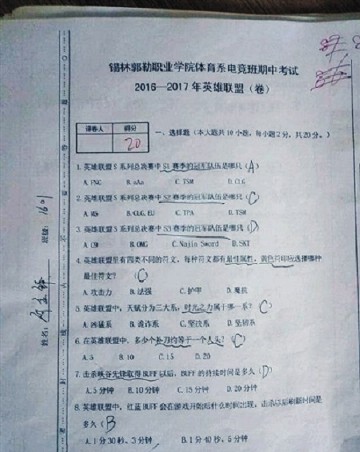 锡林郭勒职业学院体育系电竞班期中考试
2016—2017年英雄联盟（卷）
评卷人 得分
20
一、选择题（本大题共10小题，每小题2分，共20分。）
1.英雄联盟S系列总决赛中S1赛季的冠军队伍是哪只（A）
A.FNC B.aAa C.TSM D.CLG
2.英雄联盟S系列总决赛中S2赛季的冠军队伍是哪只（C）
B.CLG.EU C.TPA D.TSM
3.英雄联盟S系列总决赛中S3赛季的冠军队伍是哪只（D）
B.OMG C.Najin Sword D.SKT
4.英雄联盟里有四类不同的符文，每种符文都有最佳属性，黄色符印应选择哪种
最佳符文？（C）
A.攻击力 B.法强 C.护甲 D.魔抗
5.英雄联盟中，天赋分为三大系，时光之力属于那一系？（C）
B.诡诈系 C.坚决系
6.在英雄联盟中，多少个补刀均等于一个人头？（C）
A.5 B.10 C.15 D.20
7.击杀峡谷先锋取得BUFF以后，BUFF的持续时间是多久（D）
A.5分钟 B.10分钟 C.15分钟 D.20分钟
8.英雄联盟中，红蓝BUFF会在游戏开始后什么时间出现，击杀以后刷新时间是
多久（B
A.1分30秒、3分钟 B.1分40秒、5分钟
姓名：
班级：1601